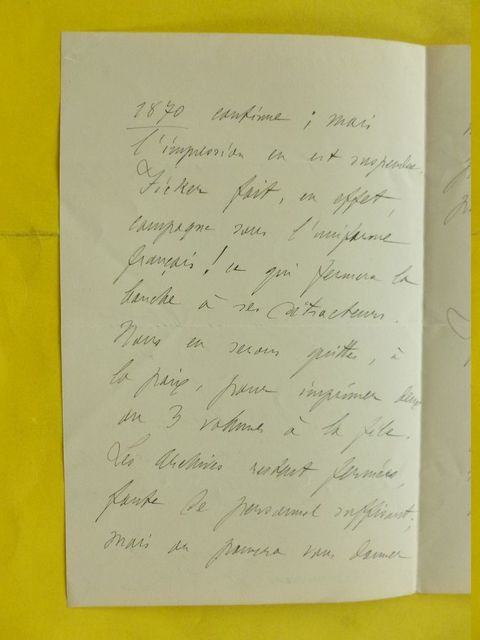 1870 continue ; mais
l'impression en est suspendue.
Ficker fait, en effet,
campagne sous l'uniforme
français ! ce qui fermera la
bouche à ses détracteurs.
Nous en serons quittes, à
la paix, pour imprimer deux
ou 3 volumes à la file.
Les Archives restent fermées,
faute de personnel suffisant ;
mais on pourra vous donner